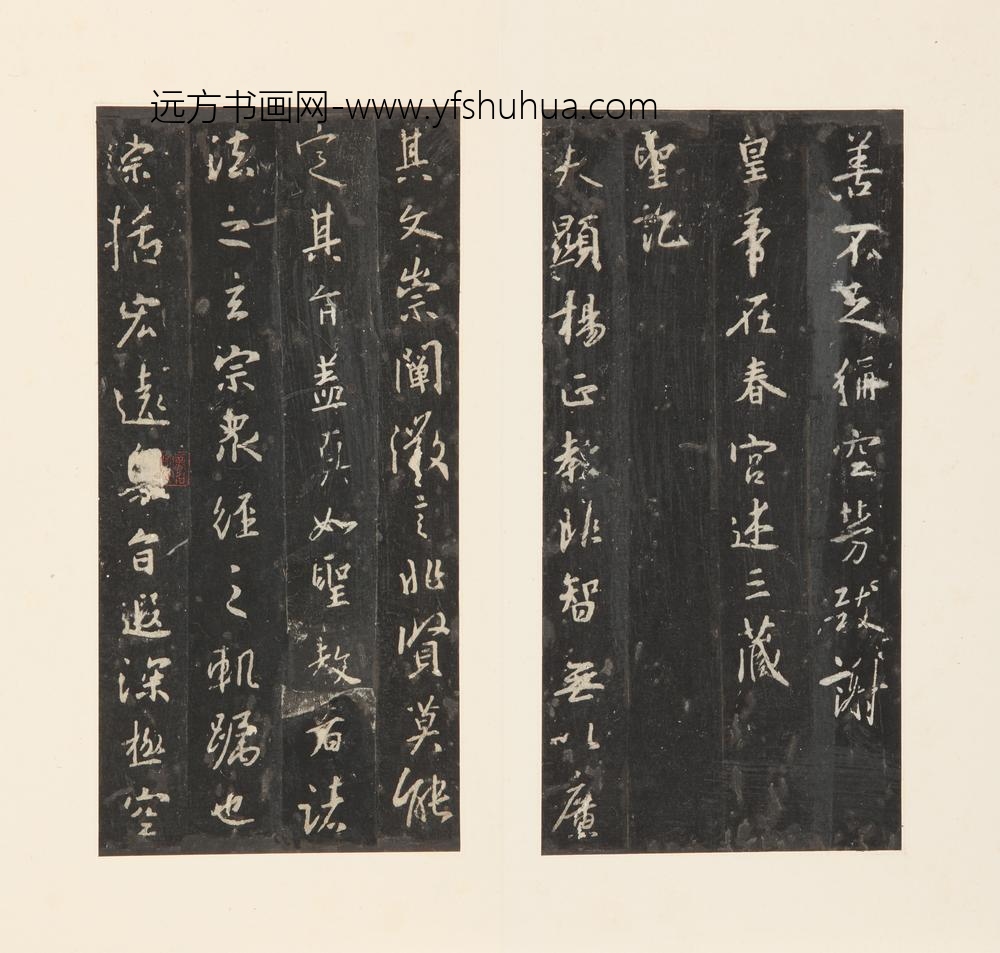 远方书画网-www.yfshuhua.com
善不足稱空勞致謝
皇帝在春宮述三藏
聖記
夫顯揚正教非智無以廣
其文崇闡微言非賢莫能
定其旨蓋真如聖教者諸
法之玄宗衆經之軌躅也
綜括宏遠奧旨遐深極空